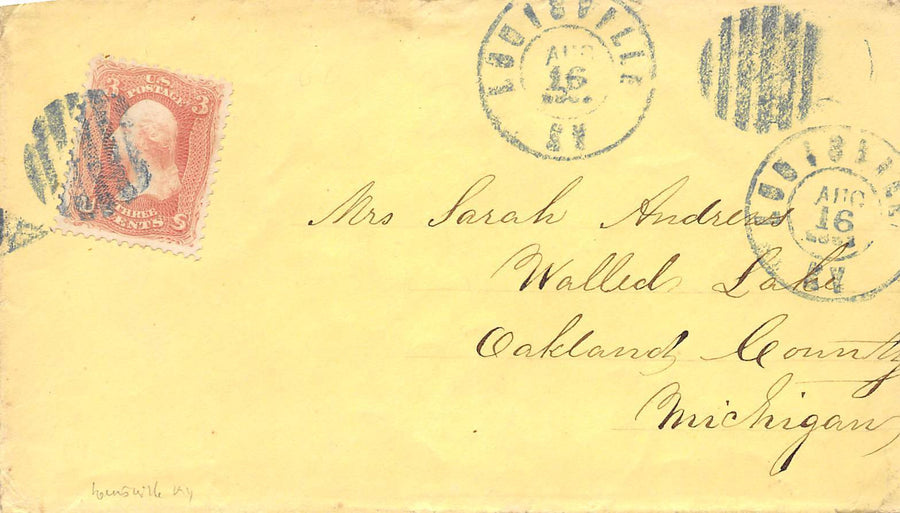 LOUISVILLE
AUG
16
KY
3 U.S. 3
POSTAGE
THREE
CENTS
LOUISVILLE
AUG
16
KY
Mrs Sarah Andrews
Walled Lake
Oakland County
Michigan
Louisville Ky